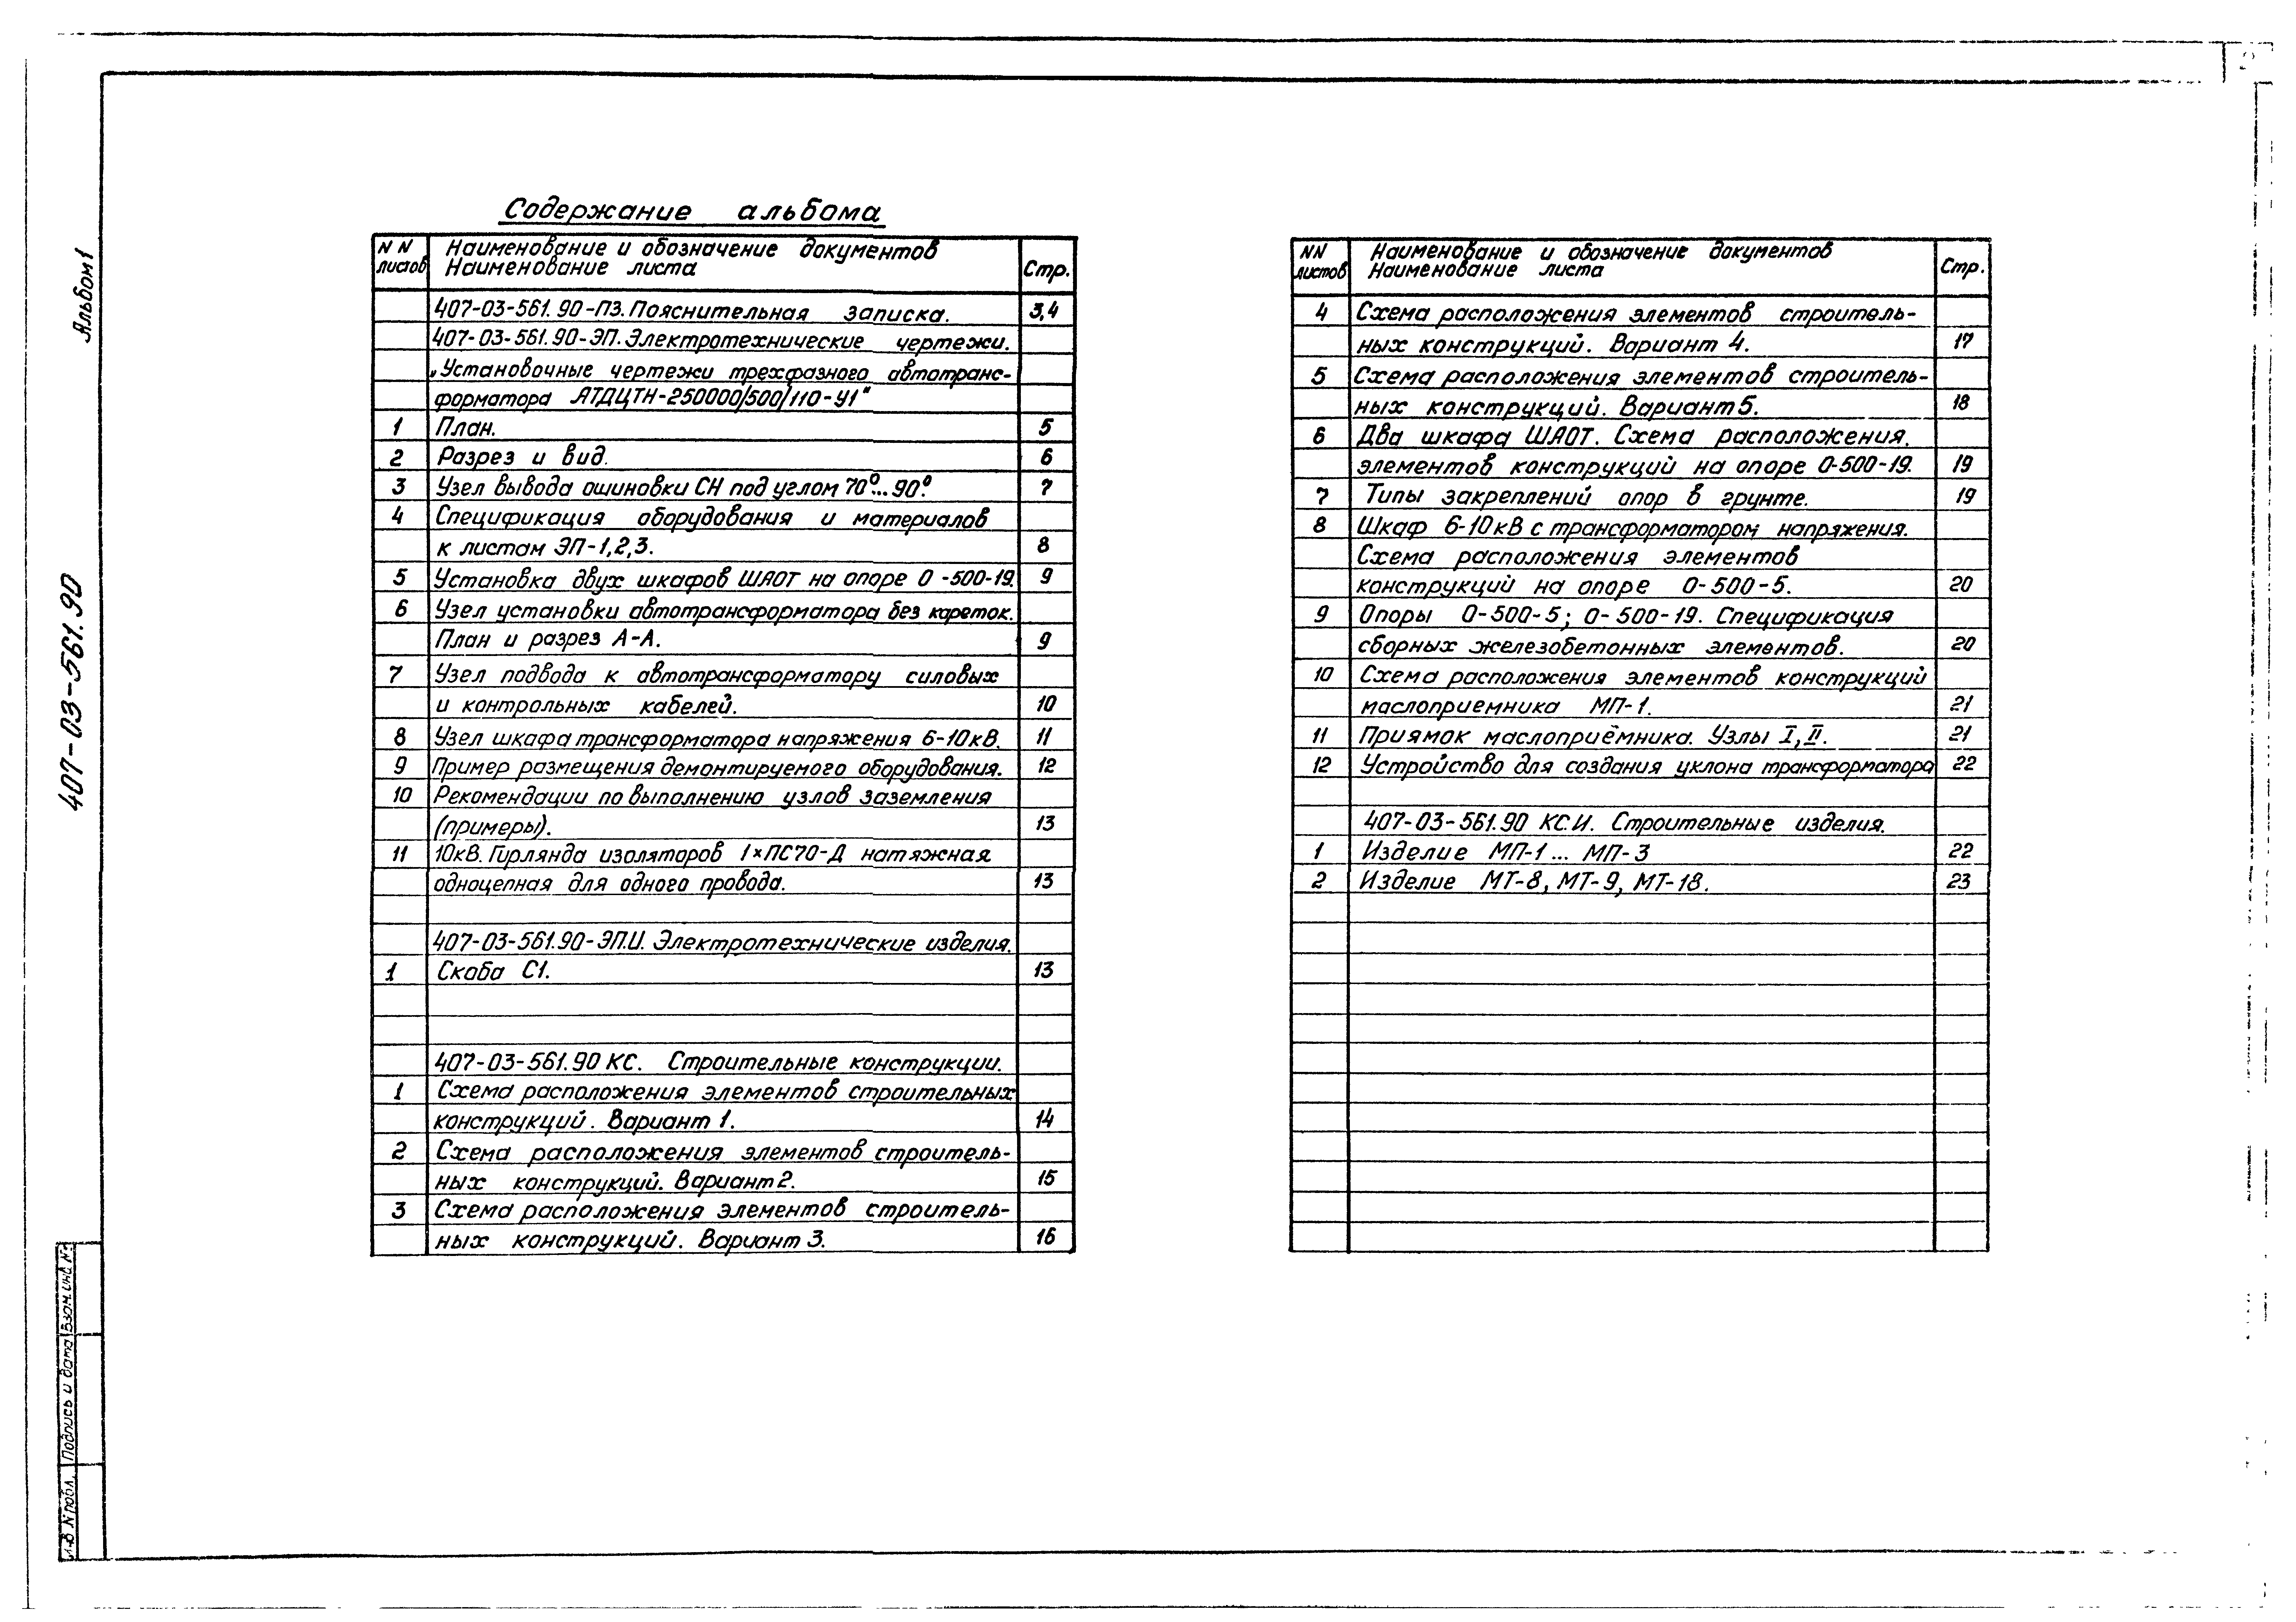 2
Альбом 1
407-03-561.90
Содержание альбома
NN листов Наименование и обозначение документов Наименование листа Стр.
407-03-561.90-ПЗ. Пояснительная записка. 3,4
407-03-561.90-ЭП. Электротехнические чертежи.
„Установочные чертежи трехфазного автотранс-
форматора АТДЦТН-250000/500/110-У1"
1 План. 5
2 Разрез и вид. 6
3 Узел вывода ошиновки СН под углом 70°...90°. 7
4 Спецификация оборудования и материалов
к листам ЭП-1,2,3. 8
5 Установка двух шкафов ШАОТ на опоре О-500-19. 9
6 Узел установки автотрансформатора без кареток.
План и разрез А-А. 9
7 Узел подвода к автотрансформатору силовых
и контрольных кабелей. 10
8 Узел шкафа трансформатора напряжения 6-10кВ. 11
9 Пример размещения демонтируемого оборудования. 12
10 Рекомендации по выполнению узлов заземления
(примеры). 13
11 10кВ. Гирлянда изоляторов 1×ПС70-Д натяжная
одноцепная для одного провода. 13
407-03-561.90-ЭП.И. Электротехнические изделия.
1 Скоба С1. 13
407-03-561.90 КС. Строительные конструкции.
1 Схема расположения элементов строительных
конструкций. Вариант 1. 14
2 Схема расположения элементов строитель-
ных конструкций. Вариант 2. 15
3 Схема расположения элементов строитель-
ных конструкций. Вариант 3. 16
NN листов Наименование и обозначение документов Наименование листа Стр.
4 Схема расположения элементов строитель-
ных конструкций. Вариант 4. 17
5 Схема расположения элементов строитель-
ных конструкций. Вариант 5. 18
6 Два шкафа ШАОТ. Схема расположения.
элементов конструкций на опоре О-500-19. 19
7 Типы закреплений опор в грунте. 19
8 Шкаф 6-10кВ с трансформатором напряжения.
Схема расположения элементов
конструкций на опоре О-500-5. 20
9 Опоры О-500-5; О-500-19. Спецификация
сборных железобетонных элементов. 20
10 Схема расположения элементов конструкций
маслоприемника МП-1. 21
11 Приямок маслоприёмника. Узлы I, II. 21
12 Устройство для создания уклона трансформатора 22
407-03-561.90 КС.И. Строительные изделия.
1 Изделие МП-1... МП-3 22
2 Изделие МТ-8, МТ-9, МТ-18. 23
Взам. инв. N:
Подпись и дата
N подл.